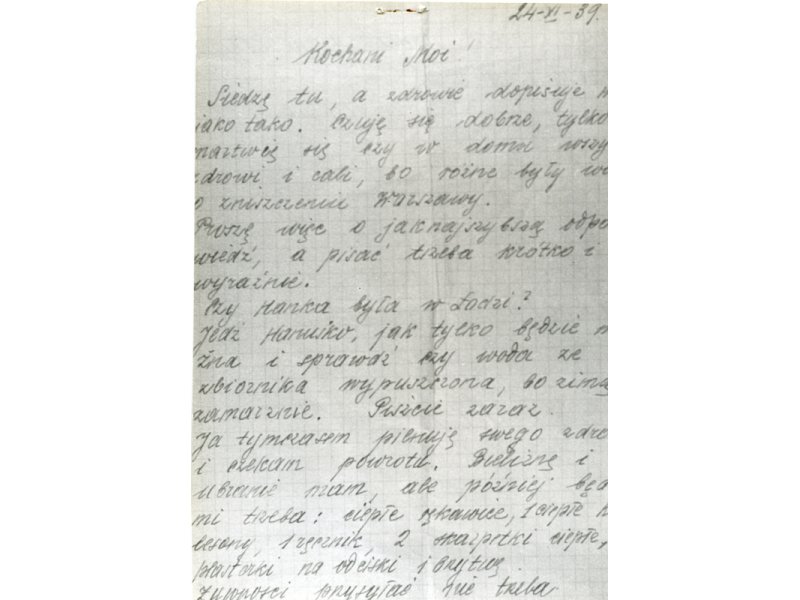 24-XI-39.
Kochani Moi!
Siedzę tu, a zdrowie dopisuje
jako tako. Czuję się dobrze, tylko
martwię się czy w domu wszy
zdrowi i cali, bo różne były wi
o zniszczeniu Warszawy.
Proszę więc o jaknajszybszą odpo
wiedź, a pisać trzeba krótko i
wyraźnie.
Czy Hanka była w Łodzi?
Jedź Hanuśko, jak tylko będzie m
żna i sprawdź czy woda ze
zbiornika wypuszczona, bo zimą
zamarznie. Piszcie zaraz.
Ja tymczasem pilnuję swego zdro
i czekam powrotu. Bieliznę i
ubranie mam, ale później będ
mi trzeba: ciepłe rękawice, 1 ciepłe
lesony, 1 ręcznik, 2 skarpetki ciepłe,
plasterki na odciski i brytwę.
Żywności przysyłać nie trzeba